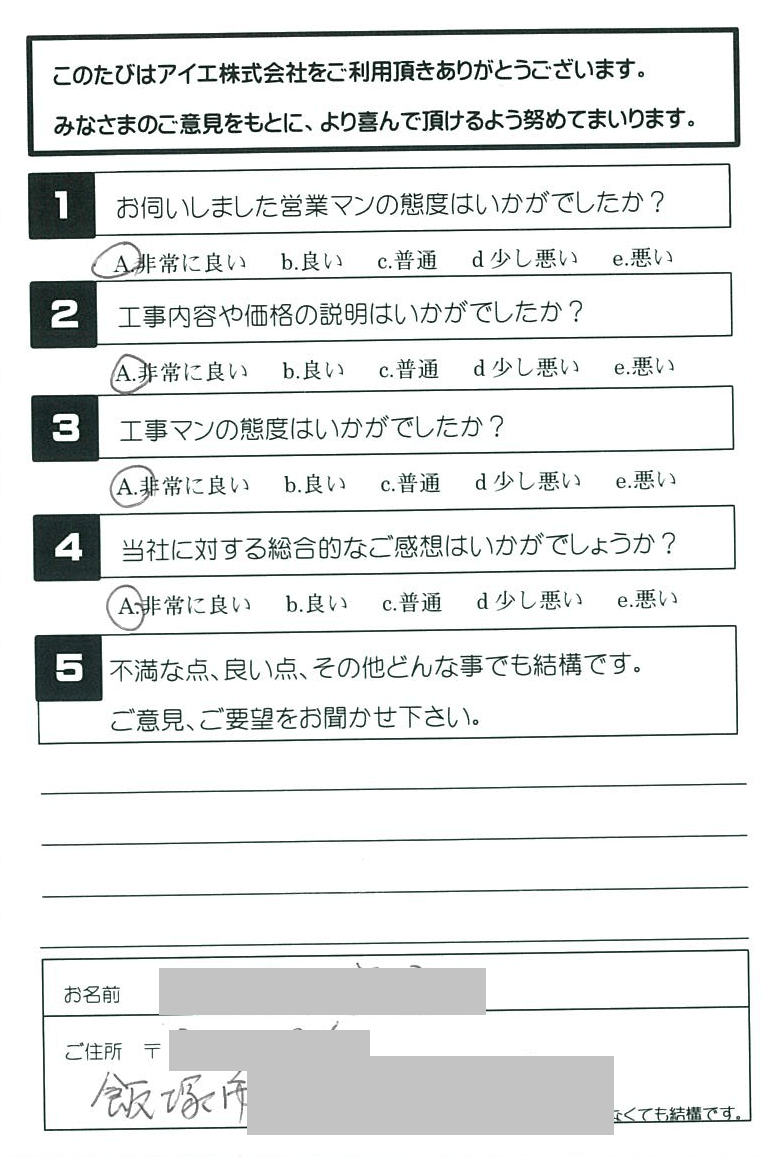 このたびはアイエ株式会社をご利用頂きありがとうございます。
みなさまのご意見をもとに、より喜んで頂けるよう努めてまいります。
1 お伺いしました営業マンの態度はいかがでしたか？
A.非常に良い b.良い c.普通 d 少し悪い e.悪い
2 工事内容や価格の説明はいかがでしたか？
A.非常に良い b.良い c.普通 d 少し悪い e.悪い
3 工事マンの態度はいかがでしたか？
A.非常に良い b.良い c.普通 d 少し悪い e.悪い
4 当社に対する総合的なご感想はいかがでしょうか？
A.非常に良い b.良い c.普通 d 少し悪い e.悪い
5 不満な点、良い点、その他どんな事でも結構です。
ご意見、ご要望をお聞かせ下さい。
お名前
ご住所 〒
飯塚市
なくても結構です。